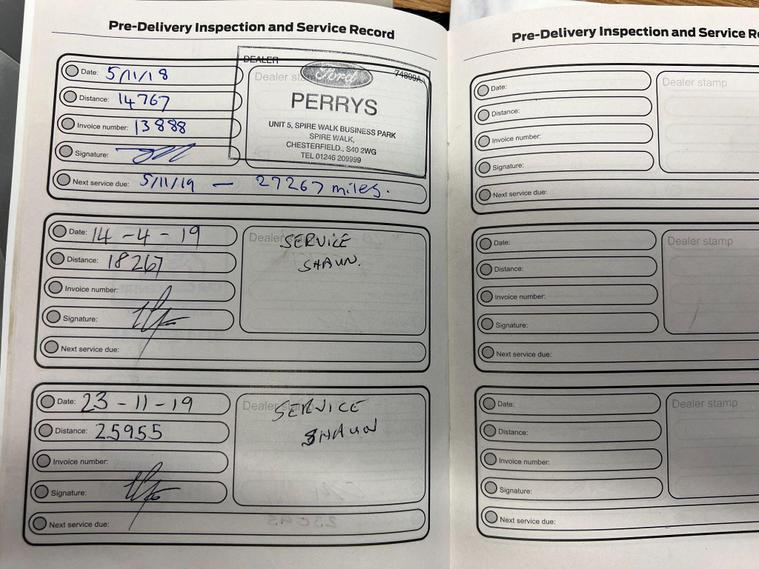 Pre-Delivery Inspection and Service Record
Date: 5/11/18
Distance: 14767
Invoice number: 13888
Signature:
Next service due: 5/11/19 — 27267 miles.
DEALER 74809A
Dealer
Ford
PERRYS
UNIT 5, SPIRE WALK BUSINESS PARK
SPIRE WALK,
CHESTERFIELD., S40 2WG
TEL 01246 209999
Date: 14-4-19
Distance: 18267
Invoice number:
Signature:
Next service due:
Dealer SERVICE
SHAUN.
Date: 23-11-19
Distance: 25955
Invoice number:
Signature:
Next service due:
Dealer SERVICE
SHAUN
Pre-Delivery Inspection and Service
Date:
Distance:
Invoice number:
Signature:
Next service due:
Dealer stamp
Date:
Distance:
Invoice number:
Signature:
Next service due:
Dealer stamp
Date:
Distance:
Invoice number:
Signature:
Next service due:
Dealer stamp